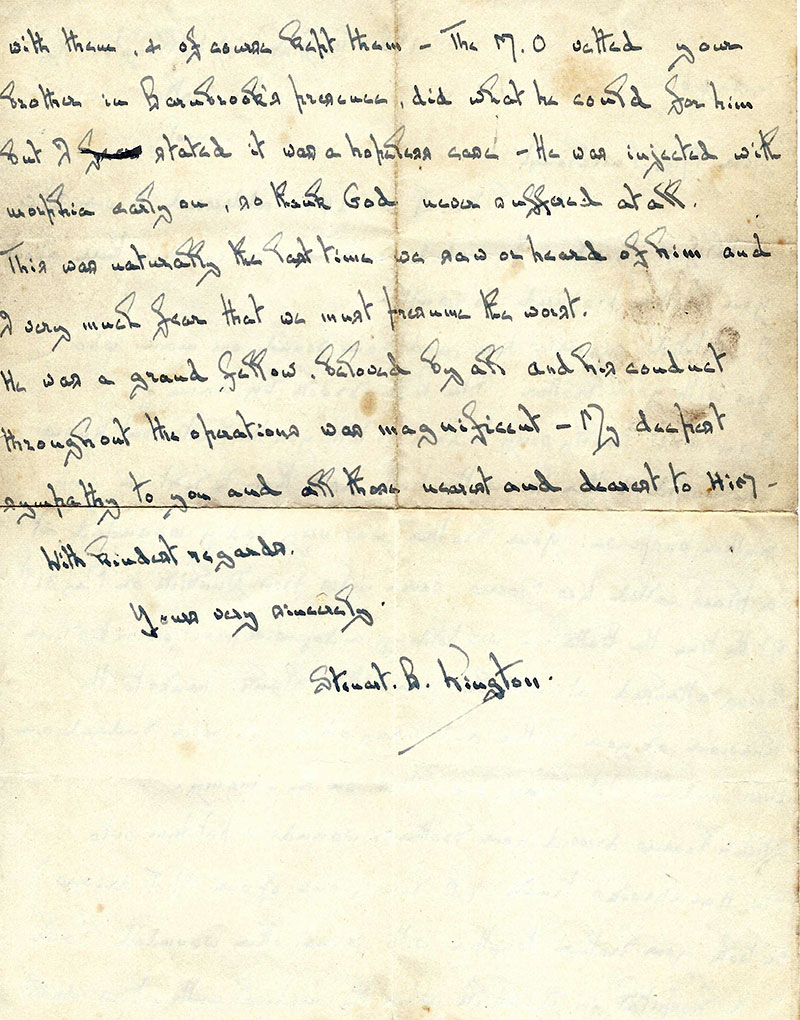 with them, & of course kept them – The M.O vetted your
brother in Barnbrook's presence, did what he could for him
but I stated it was a hopeless case – He was injected with
morphia early on, so thank God never suffered at all.
This was naturally the last time we saw or heard of him and
I very much fear that we must presume the worst.
He was a grand fellow, beloved by all and his conduct
throughout the operations was magnificent – My deepest
sympathy to you and all those nearest and dearest to Him –
With kindest regards.
Yours very sincerely.
Stewart. B. Kington.